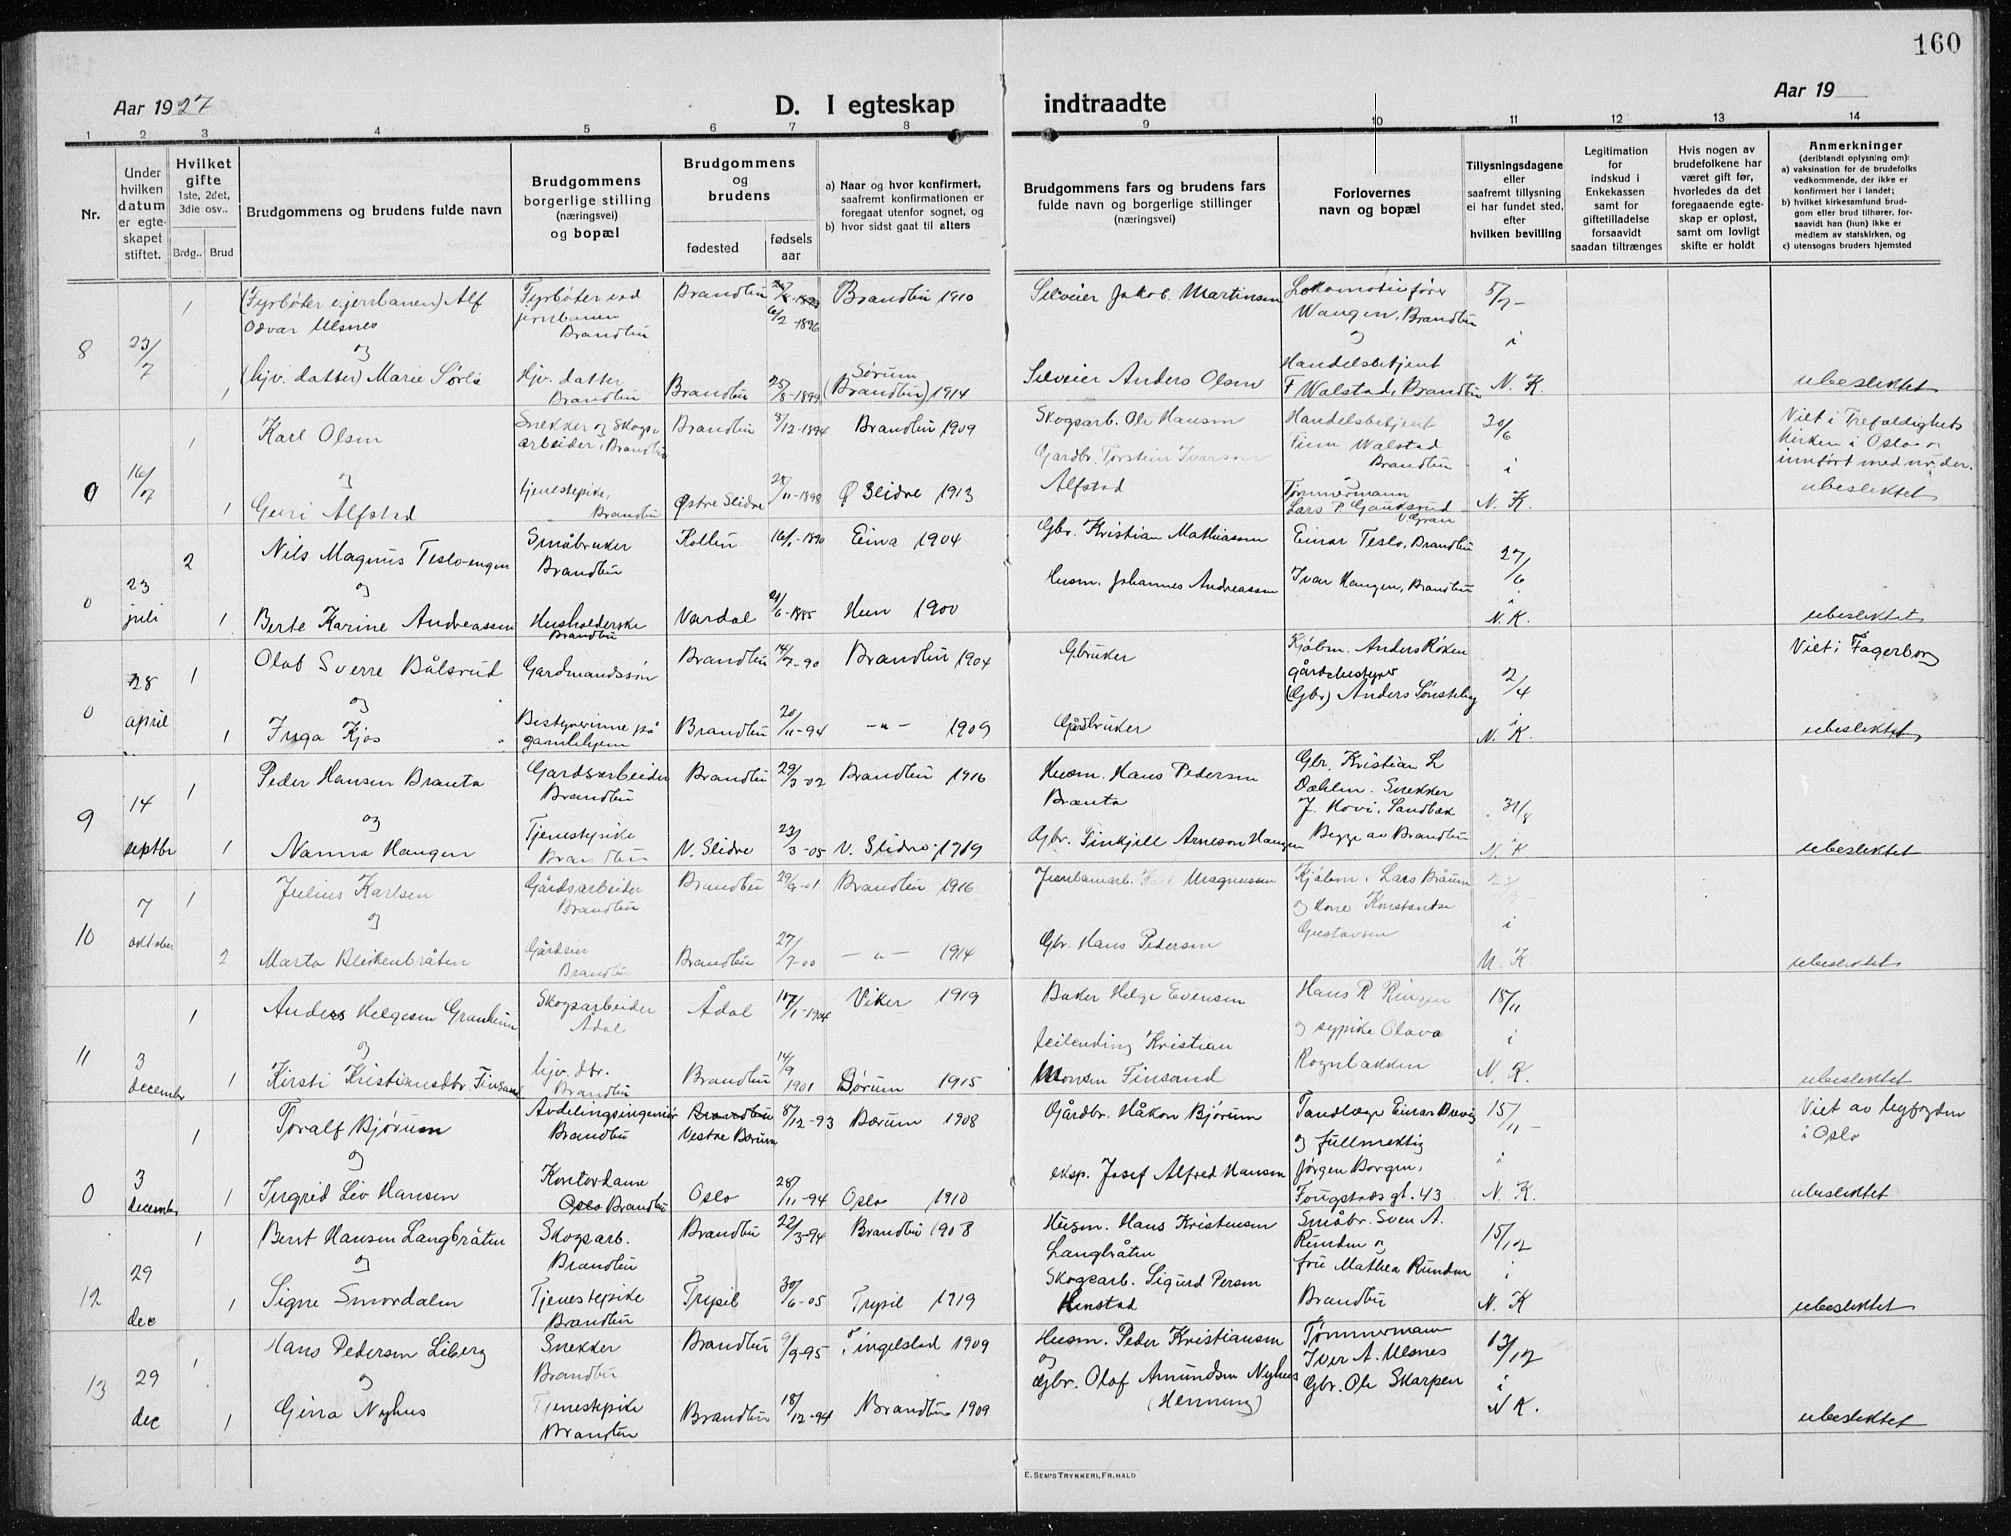 160
Aar 1927
D. I egteskap
indtraadte
Aar 19
1 2 3 4 5 6 7 8 9 10 11 12 13 14
Nr.
Under hvilken datum er egteskapet stiftet.
Hvilket gifte
1ste, 2det, 3die osv..
Brdg.. Brud
Brudgommens og brudens fulde navn
Brudgommens borgerlige stilling (næringsvei) og bopæl
Brudgommens og brudens
fødested
fødsels aar
a) Naar og hvor konfirmert, saafremt konfirmationen er foregaat utenfor sognet, og
b) hvor sidst gaat til alters
Brudgommens fars og brudens fars fulde navn og borgerlige stillinger (næringsvei)
Forlovernes navn og bopæl
Tillysningsdagene eller saafremt tillysning ei har fundet sted, efter hvilken bevilling
Legitimation for indskud i Enkekassen samt for giftetilladelse forsaavidt saadan tiltrænges
Hvis nogen av brudefolkene har været gift før, hvorledes da det foregaaende egteskap er opløst, samt om lovligt skifte er holdt
Anmerkninger
(deriblandt oplysning om):
a) vaksination for de brudefolks vedkommende, der ikke er konfirmert her i landet;
b) hvilket kirkesamfund brudgom eller brud tilhører, forsaavidt han (hun) ikke er medlem av statskirken, og
c) utensogns bruders hjemsted
8 23/7 1 (Fyrbøter v. jernbanen) Alf Odvar Ulsnes Fyrbøter ved jernbanen Brandbu Brandbu 6/2-1896 Brandbu 1910 Selveier Jakob Martinsen Lokomotivfører Wangen, Brandbu 5/7- i
og
1 (hjv. datter) Marie Sørli Hjv. datter Brandbu Brandbu 25/8-1899 Sørum (Brandbu) 1914 Selveier Anders Olsen Handelsbetjent F Walstad, Brandbu N. K. ubeslektet
0 16/7 1 Karl Olsen Snekker og Skogsarbeider, Brandbu Brandbu 8/12-1894 Brandbu 1909 Skogsarb. Ole Hansen Handelsbetjent Finn Walstad Brandbu 30/6 i Viet i Trefoldighets kirken i Oslo og innført med nr. der.
og
1 Guri Alfstad tjenestepike, Brandbu Østre Slidre 28/11-1898 Ø Slidre 1913 Gardbr. Torstein Ivarson Alfstad Tømmermann Lars P. Gaudsrud Gran N. K. ubeslektet
0 23 juli 2 Nils Magnus Teslo-engen Småbruker Brandbu Kolbu 16/1-1890 Eina 1904 Gbr. Kristian Mathiassen Einar Teslo, Brandbu 27/6
og
1 Berte Karine Andreassen Husholderske Brandbu Vardal 21/6-1885 Hun 1900 Husm. Johannes Andreassen Ivar Haugen, Brandbu i N. K. ubeslektet
0 28 april 1 Olab Sverre Bålsrud Gardmandssøn Brandbu 14/7-90 Brandbu 1904 Gbruker Kjøbm. Anders Røken 2/4 Viet i Fagerborg
og
1 Inga Kjos Bestyrerinne på gamlehjem Brandbu 20/11-94 -"- 1909 Gårdbruker gårdbestyrer (Gbr) Anders Sønsteby i N. K. ubeslektet
9 14 septbr 1 Peder Hansen Branta Gardsarbeider Brandbu Brandbu 29/3-02 Brandbu 1916 Husm. Hans Pedersen Branta Gbr. Kristian L Dæhlen. Snekker J. Hovi, Sandbæk 31/8
og
1 Nanna Haugen Tjenestepike Brandbu V. Slidre 23/3-05 V. Slidre 1919 Gbr. Finkjell Arneson Haugen Begge av Brandbu i N. K ubeslektet
10 7 oktober 1 Julius Karlsen Gårdsarbeider Brandbu Brandbu 29/9-01 Brandbu 1916 Jernbanearb. Karl Magnussen Kjøbm. Lars Bråum og kone Konstanse
og
2 Marta Bleikenbråten Gårdeier Brandbu Brandbu 27/7-00 -"- 1914 Gbr. Hans Pedersen Gustavsen i N. K. ubeslektet
11 3 december 1 Anders Helgesen Granheim Skogsarbeider Ådal Ådal 17/1-1904 Viker 1919 Baker Helge Evensen Hans R. Ringen 18/11
og
1 Kirsti Kristiansdbr. Finsand hjv. dtr. Brandbu Brandbu 14/9 1901 Sørum 1915 leilending Kristian Monsen Finsand og sypike Olava Rognbakken i N. K. ubeslektet
0 3 decembr 1 Toralf Bjørum Avdelingsingeniør Brandbu Brandbu Vestre Bærum 8/12-93 Bærum 1908 Gårdbr. Håkon Bjørum Tandlæge Einar Brevig 15/11- Viet av byfogden i Oslo
og
1 Ingrid Liv Hansen Kontordame Oslo Brandbu Oslo 28/11-94 Oslo 1910 eksp. Josef Alfred Hansen og fullmektig Jørgen Borgen, Fougstads gt. 43 i N. K. ubeslektet
12 29 dec 1 Bernt Hansen Langbråten Skogsarb. Brandbu Brandbu 22/3-94 Brandbu 1908 Husm. Hans Kristensen Langbråten Småbr. Sven A. Runden og 15/12
og
1 Signe Smordalen Tjenestepike Brandbu Trysil 30/6-05 Trysil 1919 Skogsarb. Sigurd Persen Henstad fru Mathea Runden Brandbu i N. K ubeslektet
13 29 dec 1 Hans Pedersen Liberg Snekker Brandbu Brandbu 9/9-95 Tingelstad 1909 Husm. Peder Kristiansen Tømmermann Iver A. Ulsnes 13/12
og
1 Gina Nyhus Tjenestepike Brandbu Brandbu 18/12-94 Brandbu 1909 og Gbr. Olaf Amundsen Nyhus (Henning) Gbr. Ole Skarpen i N K. ubeslektet
E. SEM'S TRYKKERI, FR.HALD